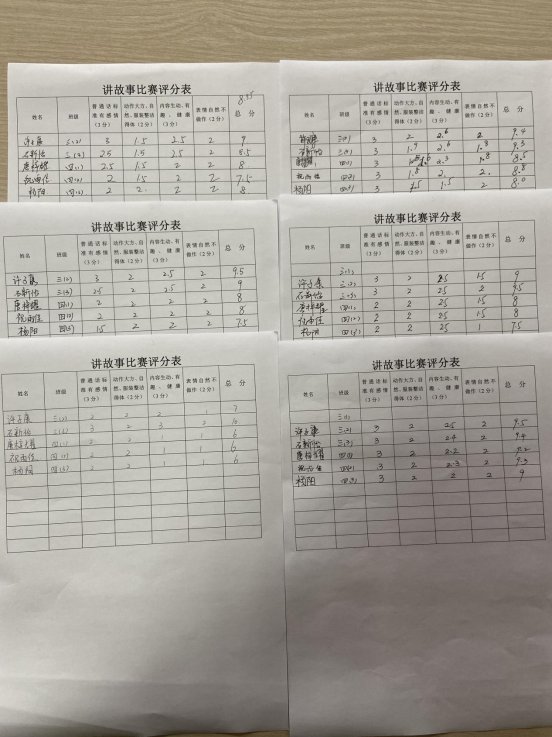 讲故事比赛评分表
8.75
姓名 班级 普通话标准有感情(3分) 动作大方、自然、服装整洁得体(2分) 内容生动、有趣、健康(3分) 表情自然不做作(2分) 总分
许子康 三(2) 3 1.5 2.5 2 9
石新怡 三(3) 2.5 1.5 2.5 2 8.5
唐梓耀 四(1) 2.5 1.5 2 2 8
祝雨佳 四(2) 2 1.5 2 2 7.5
杨阳 四(3) 2 2 2 2 8
讲故事比赛评分表
姓名 班级 普通话标准有感情(3分) 动作大方、自然、服装整洁得体(2分) 内容生动、有趣、健康(3分) 表情自然不做作(2分) 总分
三(2) 3 2 2.6 2 9.4
石新怡 三(3) 3 1.9 2.6 1.8 9.3
四(1) 3 2.3 1.8 8.6
祝雨佳 四(2) 3 1.8 2 2 8.8
杨阳 四(3) 3 1.5 1.5 2 8.0
讲故事比赛评分表
姓名 班级 普通话标准有感情(3分) 动作大方、自然、服装整洁得体(2分) 内容生动、有趣、健康(3分) 表情自然不做作(2分) 总分
许子康 三(2) 3 2 2.5 2 9.5
石新怡 三(3) 2.5 2 2.5 2 9
唐梓耀 四(1) 2 2 2 2 8
祝雨佳 四(2) 2 2 2 2 8
杨阳 四(3) 1.5 2 2 2 7.5
讲故事比赛评分表
姓名 班级 普通话标准有感情(3分) 动作大方、自然、服装整洁得体(2分) 内容生动、有趣、健康(3分) 表情自然不做作(2分) 总分
三(1)
许子康 三(2) 3 2 2.5 1.5 9
石新怡 三(3) 3 2 2.5 2 9.5
唐梓耀 四(1) 2 2 2.5 1.5 8
四(2) 2 2 2.5 1.5 8
杨阳 四(3) 2 2 2.5 1 7.5
讲故事比赛评分表
姓名 班级 普通话标准有感情(3分) 动作大方、自然、服装整洁得体(2分) 内容生动、有趣、健康(3分) 表情自然不做作(2分) 总分
许子康 三(2) 2 2 2 1 7
石新怡 三(3) 3 2 3 2
唐梓耀 四(1) 2 2 1 1 6
祝雨佳 四(2) 2 2 1 1 6
杨阳 四(3) 2 2 1 1 6
讲故事比赛评分表
姓名 班级 普通话标准有感情(3分) 动作大方、自然、服装整洁得体(2分) 内容生动、有趣、健康(3分) 表情自然不做作(2分) 总分
三(1)
许子康 三(2) 3 2 2.5 2 9.5
石新怡 三(3) 3 2 2.4 2 9.4
唐梓耀 四(1) 3 2 2.2 2 9.2
祝雨佳 四(2) 3 2 2.3 2 9.3
杨阳 四(3) 3 2 2 2 9